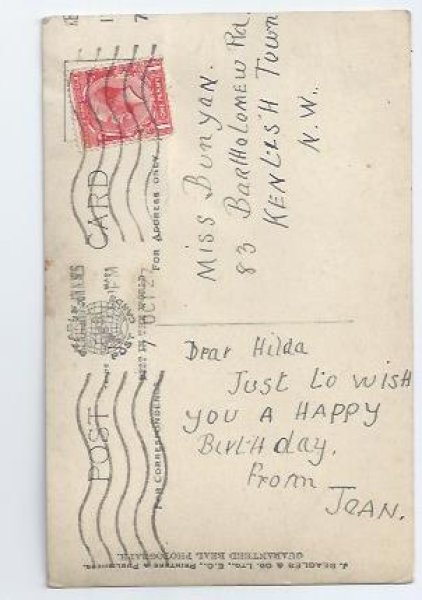 POST CARD
FOR CORRESPONDENCE
FOR ADDRESS ONLY
ONE PENNY
OCT 27
Miss Bunyan.
83 Bartholomew Rd
Kentish Town
N.W.
Dear Hilda
Just to wish
you a Happy
Birthday.
From
Joan.
J. BEAGLES & CO. LTD., E.C., PRINTERS & PUBLISHERS.
GUARANTEED REAL PHOTOGRAPH.